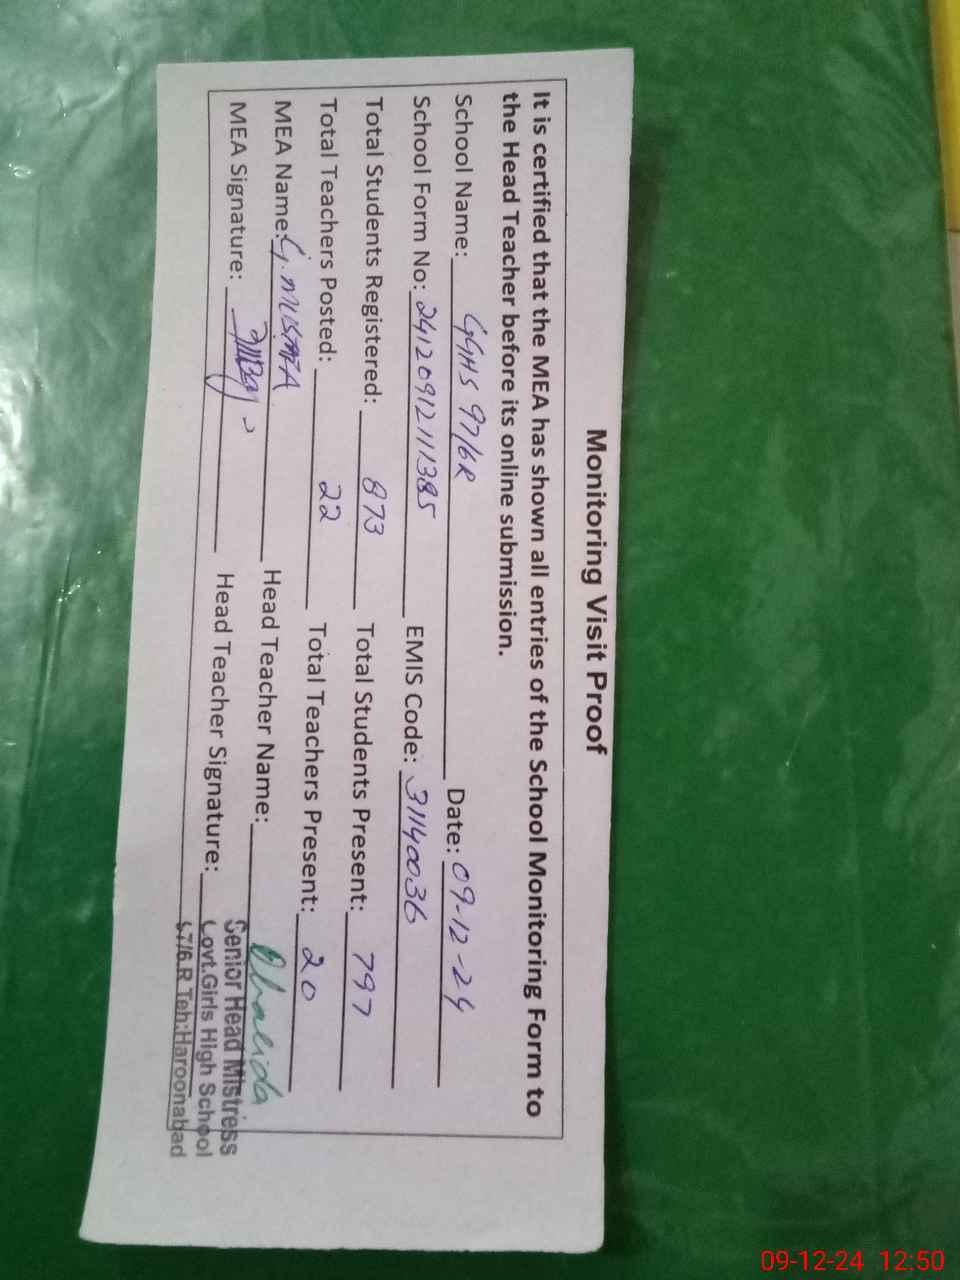 Monitoring Visit Proof
It is certified that the MEA has shown all entries of the School Monitoring Form to
the Head Teacher before its online submission.
School Name: GGHS 97/6R Date: 09-12-24
School Form No: 241209121111385 EMIS Code: 31140036
Total Students Registered: 873 Total Students Present: 797
Total Teachers Posted: 22 Total Teachers Present: 20
MEA Name: G. MUSTAFA Head Teacher Name:
MEA Signature: Head Teacher Signature:
Senior Head Mistress
Govt.Girls High School
97/6.R Teh:Haroonabad
09-12-24 12:50